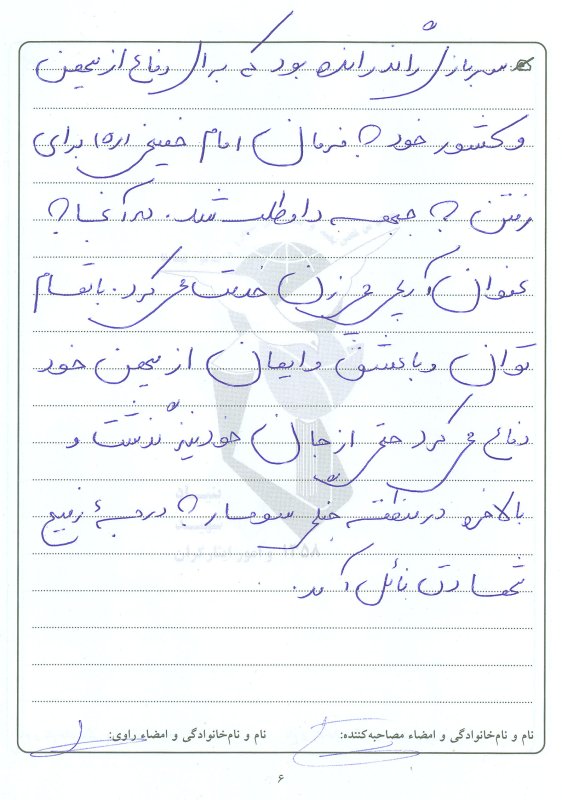 سرباز ژاندارمی بود که برای دفاع از میهن
و کشور خود به فرمان امام خمینی (ره) برای
رفتن به جبهه داوطلب شد. در آنجا به
عنوان آرپی جی زن خدمت می کرد. با تمام
توان و با عشق و ایمان از میهن خود
دفاع می کرد حتی از جان خود نیز گذشت و
بالاخره در منطقه جنگی سومار به درجهٔ رفیع
شهادت نائل آمد.
نام و نام‌خانوادگی و امضاء مصاحبه‌کننده: نام و نام‌خانوادگی و امضاء راوی:
۶